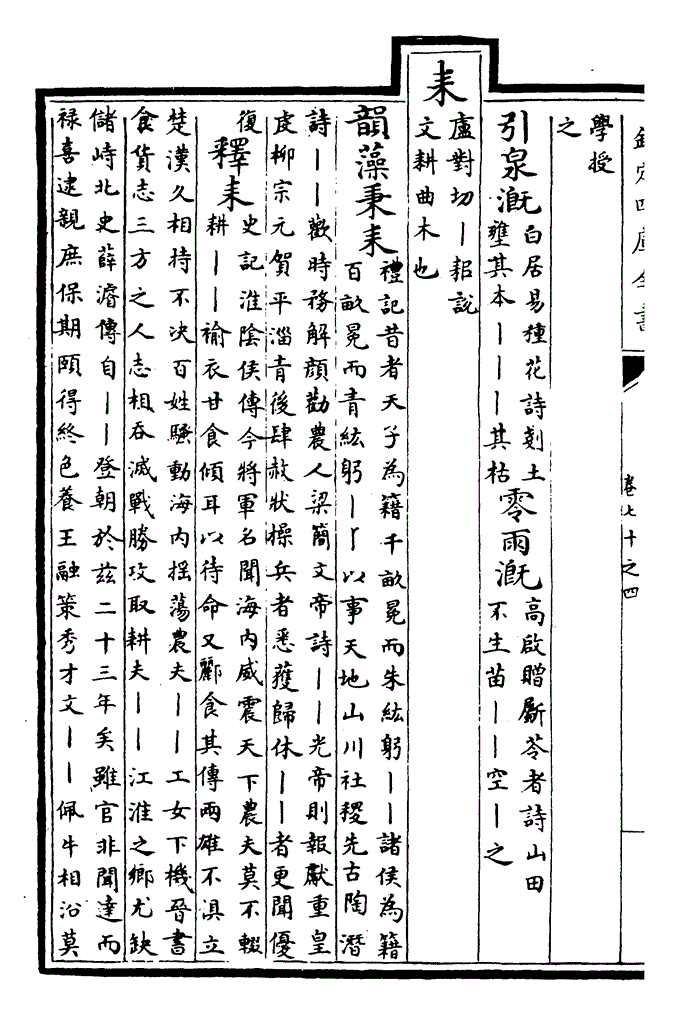 欽定四庫全書
卷七十之四
學授
之
引泉溉
白居易種花詩剗土
壅其本｜｜｜其枯
零雨溉
高啟贈斸苓者詩山田
不生苗｜｜空｜之
耒
盧對切｜耜說
文耕曲木也
韻藻秉耒
禮記昔者天子為籍千畝冕而朱紘躬｜｜諸侯為籍
百畝冕而青紘躬｜｜以事天地山川社稷先古陶潛
詩｜｜歡時務解顏勸農人梁簡文帝詩｜｜光帝則報獻重皇
度柳宗元賀平淄青後肆赦狀操兵者悉獲歸休｜｜者更聞優
復
釋耒
史記淮陰侯傳今將軍名聞海內威震天下農夫莫不輟
耕｜｜褕衣甘食傾耳以待命又酈食其傳兩雄不俱立
楚漢久相持不決百姓騷動海内揺蕩農夫｜｜工女下機晉書
食貨志三方之人志相吞滅戰勝攻取耕夫｜｜江淮之鄉尤缺
儲峙北史薛濬傳自｜｜登朝於兹二十三年矣雖官非聞達而
祿喜逮親庶保期頤得終色養王融策秀才文｜｜佩牛相沿莫